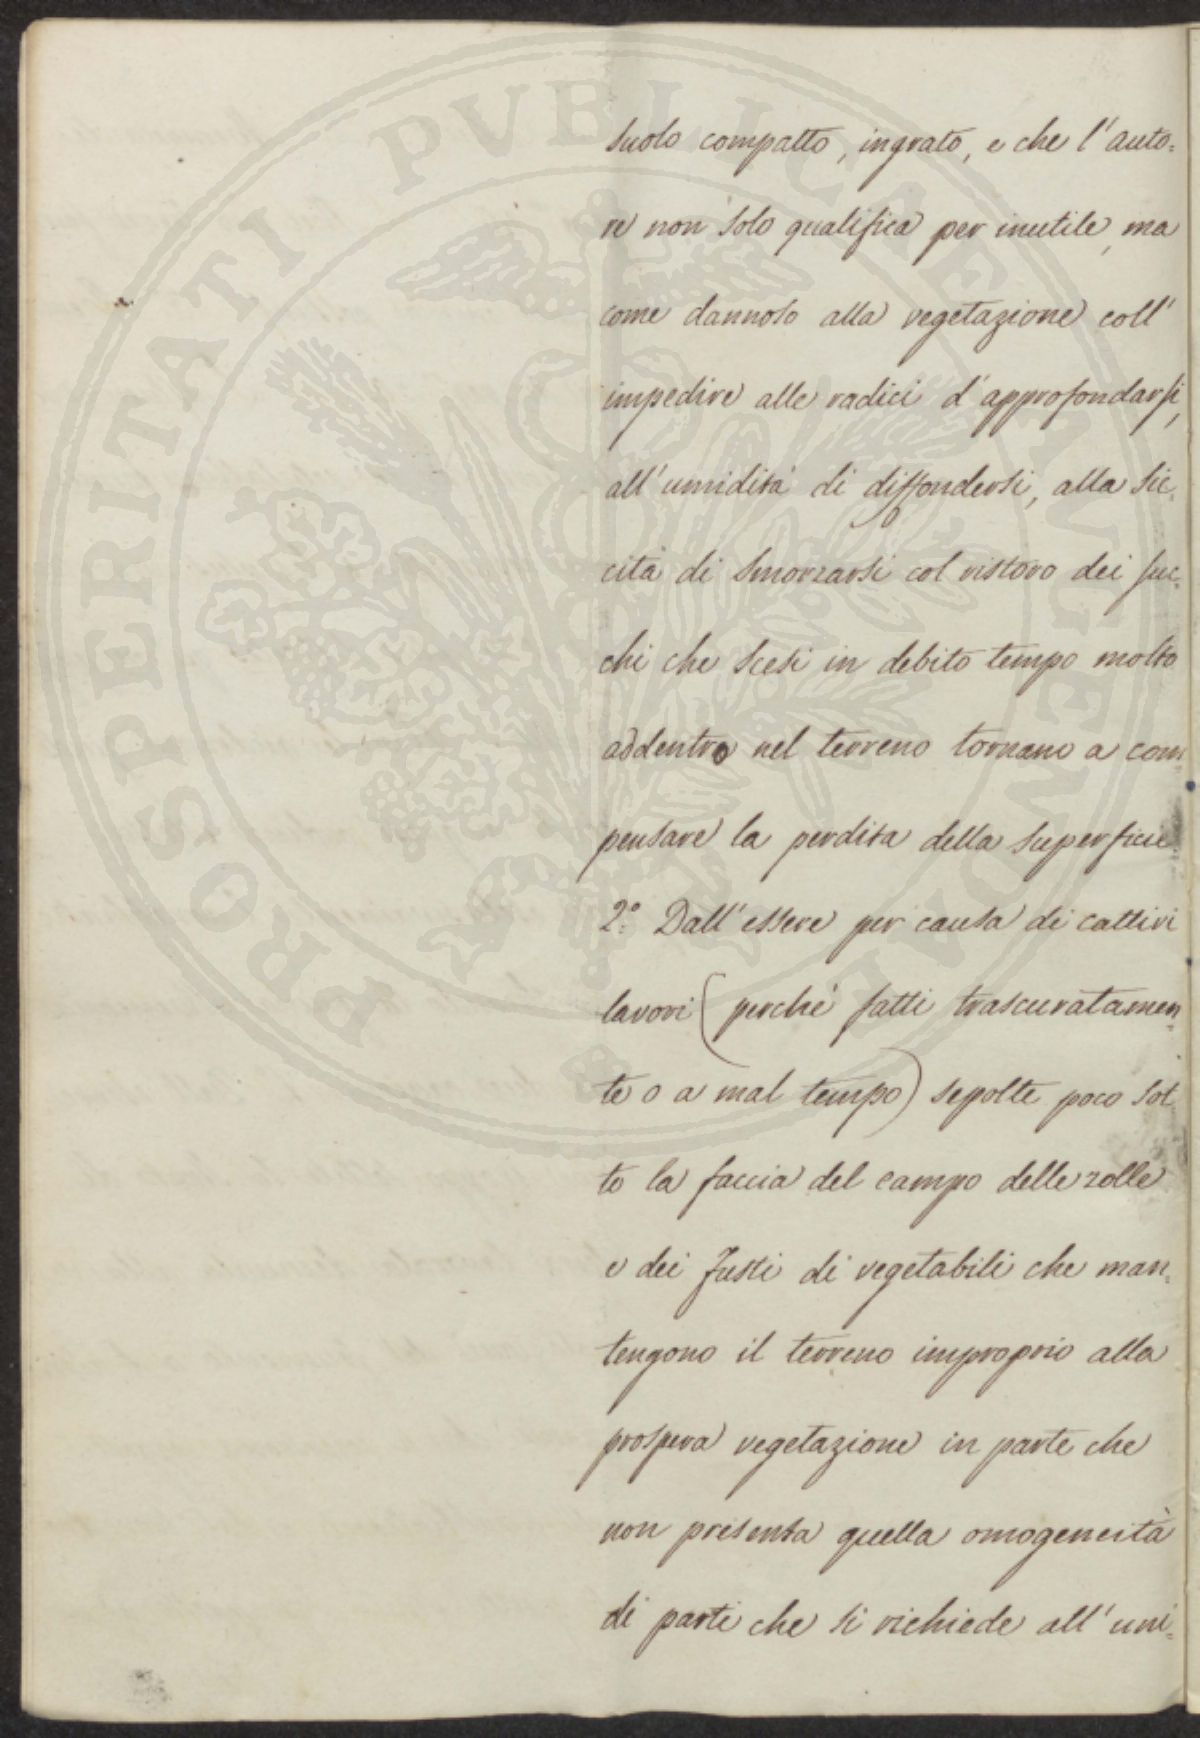 suolo compatto, ingrato, e che l'auto=
re non solo qualifica per inutile, ma
come dannoso alla vegetazione coll'
impedire alle radici d'approfondarsi,
all'umidità di diffondersi, alla sic=
cità di smorzarsi col ristoro dei suc=
chi che scesi in debito tempo molto
addentro nel terreno tornano a com
pensare la perdita della superficie
2.° Dall'essere per causa di cattivi
lavori (perchè fatti trascuratamen=
te o a mal tempo) sepolte poco sot
to la faccia del campo delle zolle
e dei fusti di vegetabili che man=
tengono il terreno improprio alla
prospera vegetazione in parte che
non presenta quella omogeneità
di parti che si richiede all'uni=
PROSPERITATI PUBLICAE AUGENDAE